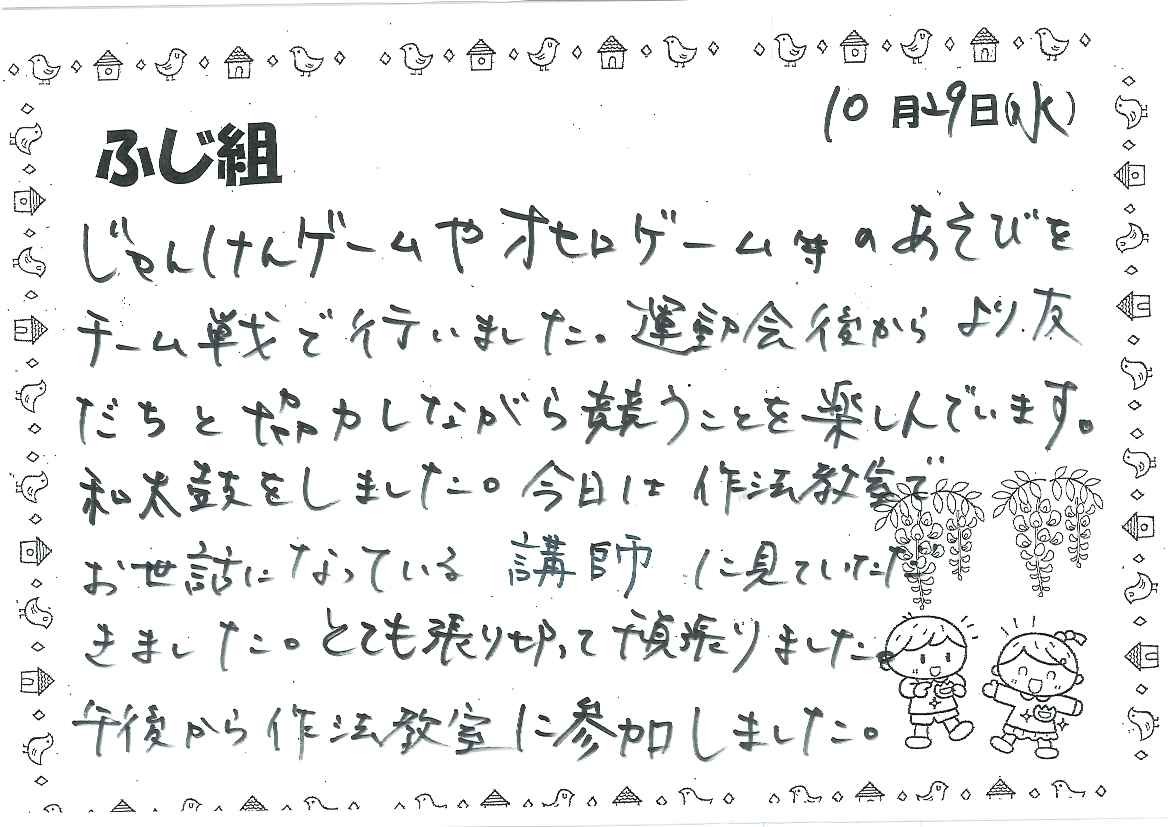 10月29日(水)
ふじ組
じゃんけんゲームやオセロゲーム等のあそびを
チーム戦で行いました。運動会後からより友
だちと協力しながら競うことを楽しんでいます。
和太鼓をしました。今日は作法教室で
お世話になっている 講師 に見ていただ
きました。とても張り切って頑張りました。
午後から作法教室に参加しました。